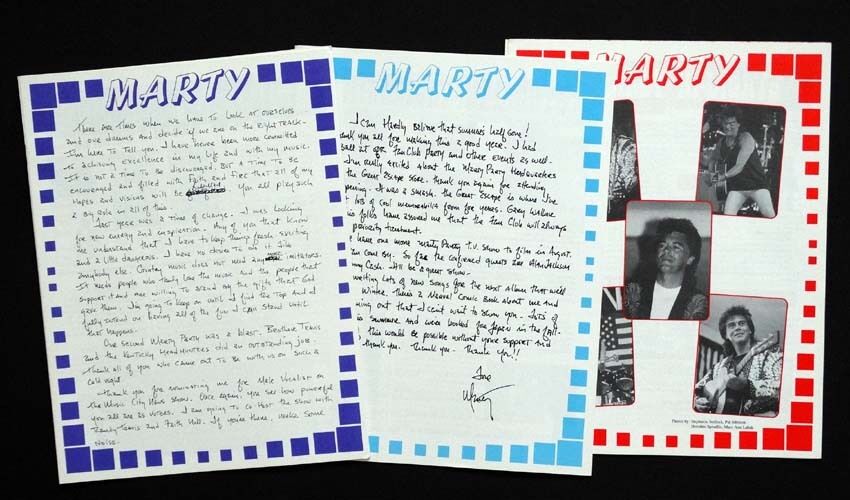 MARTY
There are times when we have to look at ourselves
and our dreams and decide if we are on the right track.
I'm here to tell you, I have never been more committed
to achieving excellence in my life and with my music.
It is not a time to be discouraged, but a time to be
encouraged and filled with faith and fire that all of my
hopes and visions will be You all play such
a big role in all of this.
Last year was a time of change. I was looking
for new energy and inspiration. Any of you that know
me understand that I have to keep things fresh, exciting
and a little dangerous. I have no desire to do it like
anybody else. Country music does not need any more imitators.
It needs people who truly love the music and the people that
support it and are willing to stand on the gifts that God
gave them. I'm going to keep on until I find the top and I
fully intend on having all of the fun I can stand until
that happens.
Our second Marty Party was a blast. Brother Travis
and the Kentucky Headhunters did an outstanding job.
Thank all of you who came out to be with us on such a
cold night.
Thank you for nominating me for Male Vocalist on
the Music City News show. Once again, you see how powerful
you all are as voters. I am going to co host the show with
Randy Travis and Faith Hill. If you're there, make some
noise.
MARTY
I can hardly believe that summer's half gone!
thank you all for making this a good year. I had
ball at our Fan Club party and other events as well.
I'm really excited about the Marty Party Headquarters
the Great Escape store. Thank you again for attending
opening. It was a smash. The Great Escape is where I've
lots of cool memorabilia from for years. Gary Walker
his folks have assured me that the Fan Club will always
priority treatment.
have one more Marty Party T.V. show to film in August.
come by. So far the confirmed guests are Alan Jackson
Cash. It'll be a great show.
writing lots of new songs for the next album that we'll
Winter. There's a Marvel Comic Book about me and
coming out that I can't wait to show you. Lots of
this summer and we're booked for in the fall.
this would be possible without your support and
thank you. Thank you. Thank you!!
Love
Marty
MARTY
Photos by: Stephanie